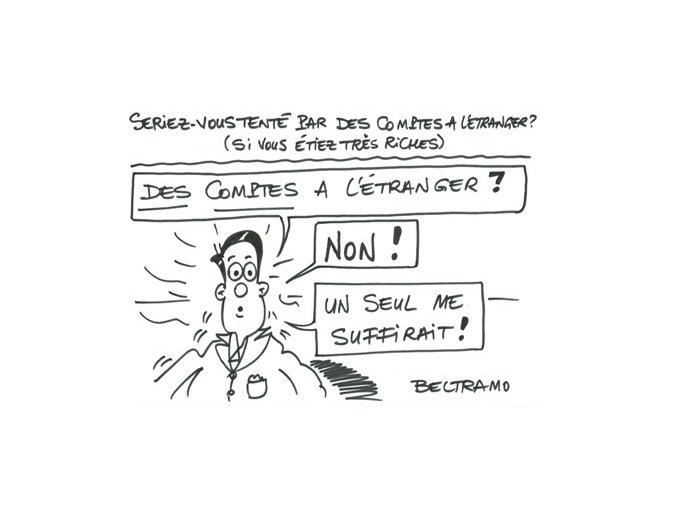 SERIEZ-VOUS TENTÉ PAR DES COMPTES A L'ÉTRANGER?
(SI VOUS ÉTIEZ TRÈS RICHES)
DES COMPTES A L'ÉTRANGER?
NON!
UN SEUL ME
SUFFIRAIT!
BELTRAMO